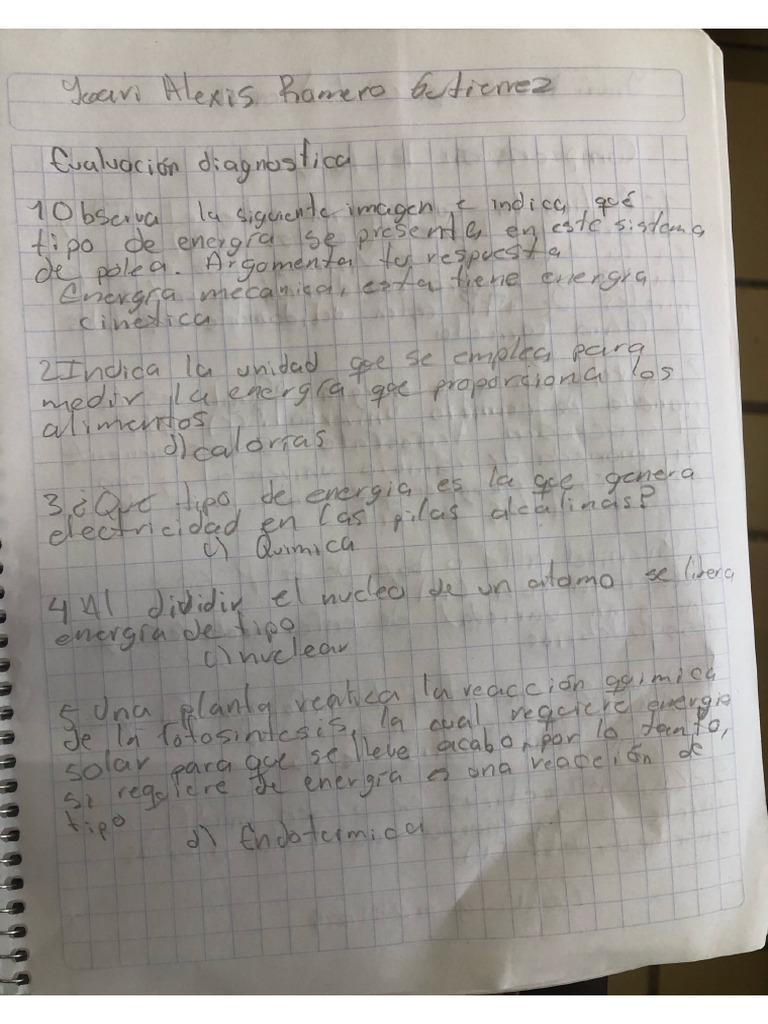 Yoavi Alexis Romero Gutierrez
Evaluación diagnostica
1 Observa la siguiente imagen e indica qué
tipo de energía se presenta en este sistema
de polea. Argomenta tu respuesta
Energía mecanica, esta tiene energía
cinetica
2 Indica la unidad que se emplea para
medir la energía que proporciona los
alimentos
d) calorias
3 ¿Que tipo de energia es la que genera
electricidad en las pilas alcalinas?
c) Quimica
4 Al dividir el nucleo de un atamo se libera
energía de tipo
c) nuclear
5 Una planta realica la reacción quimica
de la fotosintesis, la cual requiere energia
solar para que se lleve acabo, por lo tanto,
si requiere de energía es una reacción de
tipo
d) Endotermica